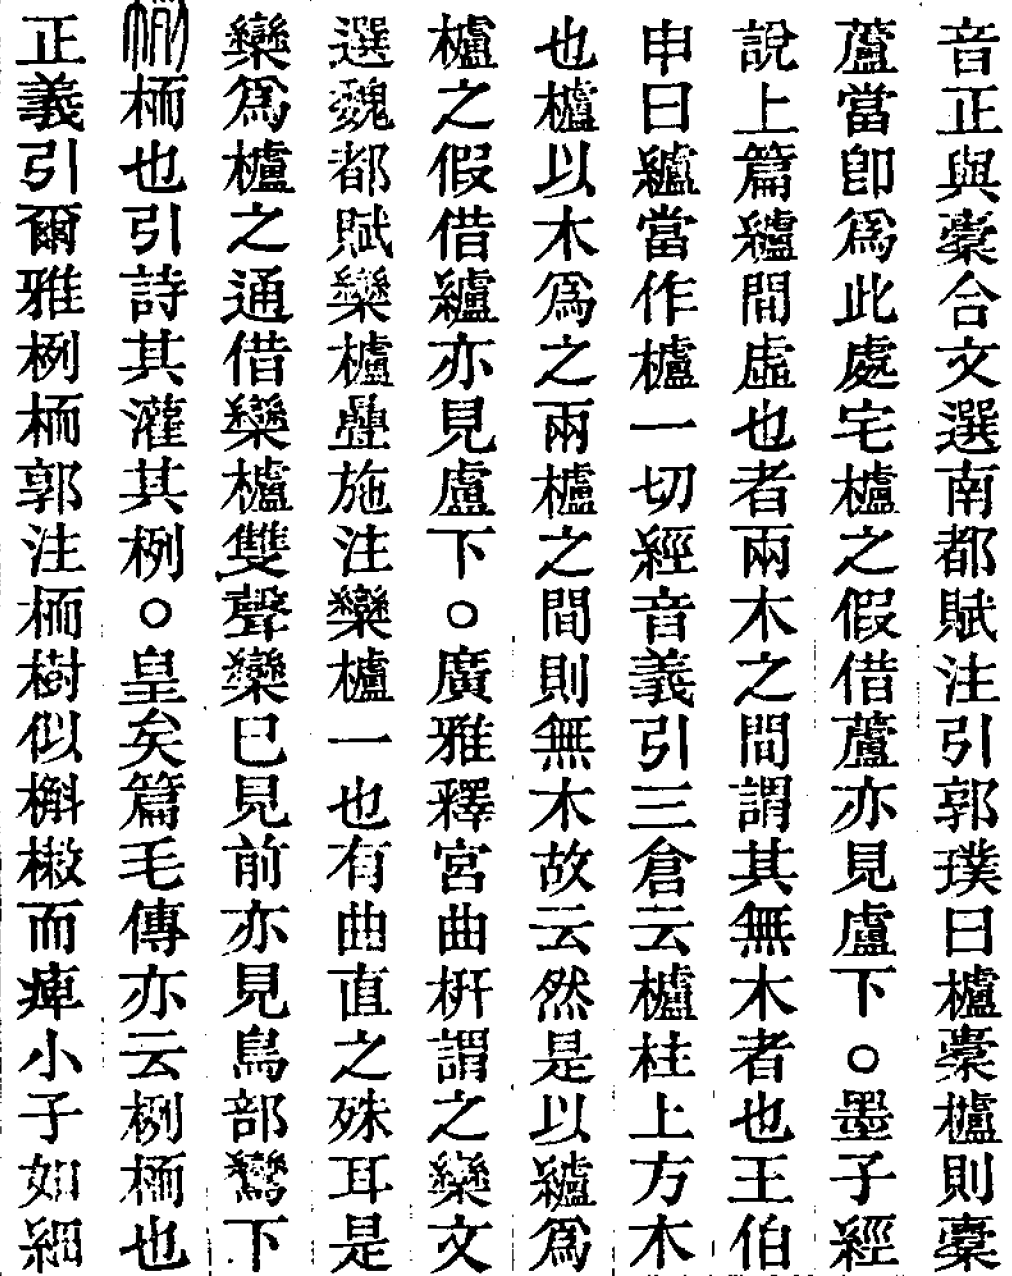 音正與櫜合文選南都賦注引郭璞曰櫨櫜櫨則櫜
蘆當卽爲此處宅櫨之假借蘆亦見盧下○墨子經
說上篇纑間虛也者兩木之間謂其無木者也王伯
申曰纑當作櫨一切經音義引三倉云櫨柱上方木
也櫨以木爲之兩櫨之間則無木故云然是以纑爲
櫨之假借纑亦見盧下○廣雅釋宮曲枅謂之欒文
選魏都賦欒櫨疊施注欒櫨一也有曲直之殊耳是
欒爲櫨之通借欒櫨雙聲欒已見前亦見鳥部鸞下
栵栭也引詩其灌其栵○皇矣篇毛傳亦云栵栭也
正義引爾雅栵栭郭注栭樹似槲樕而痺小子如細